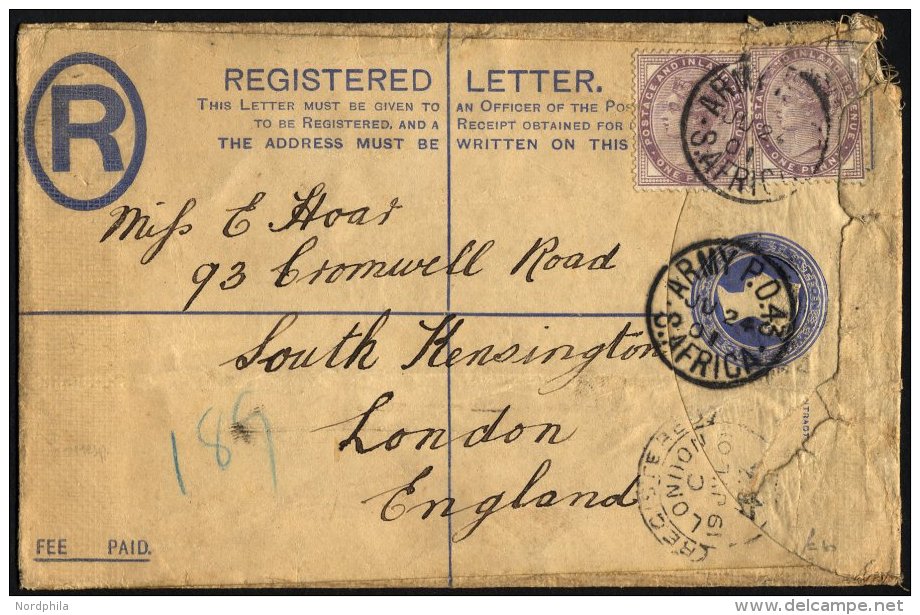 R
REGISTERED LETTER.
THIS LETTER MUST BE GIVEN TO AN OFFICER OF THE POS
TO BE REGISTERED, AND A RECEIPT OBTAINED FOR
THE ADDRESS MUST BE WRITTEN ON THIS
POSTAGE AND INLA
ONE PE
AND INLAND REVENUE
ONE PENNY
ARMY
01
S. AFRICA
Miss E Hoar
93 Cromwell Road
South Kensington
London
England
ARMY P.O. 43
JU 24
01
S. AFRICA
189
REGISTERED
LONDON
C
19 JL 01
NTRACT
FEE PAID.
Nordphila
©delcampe.net